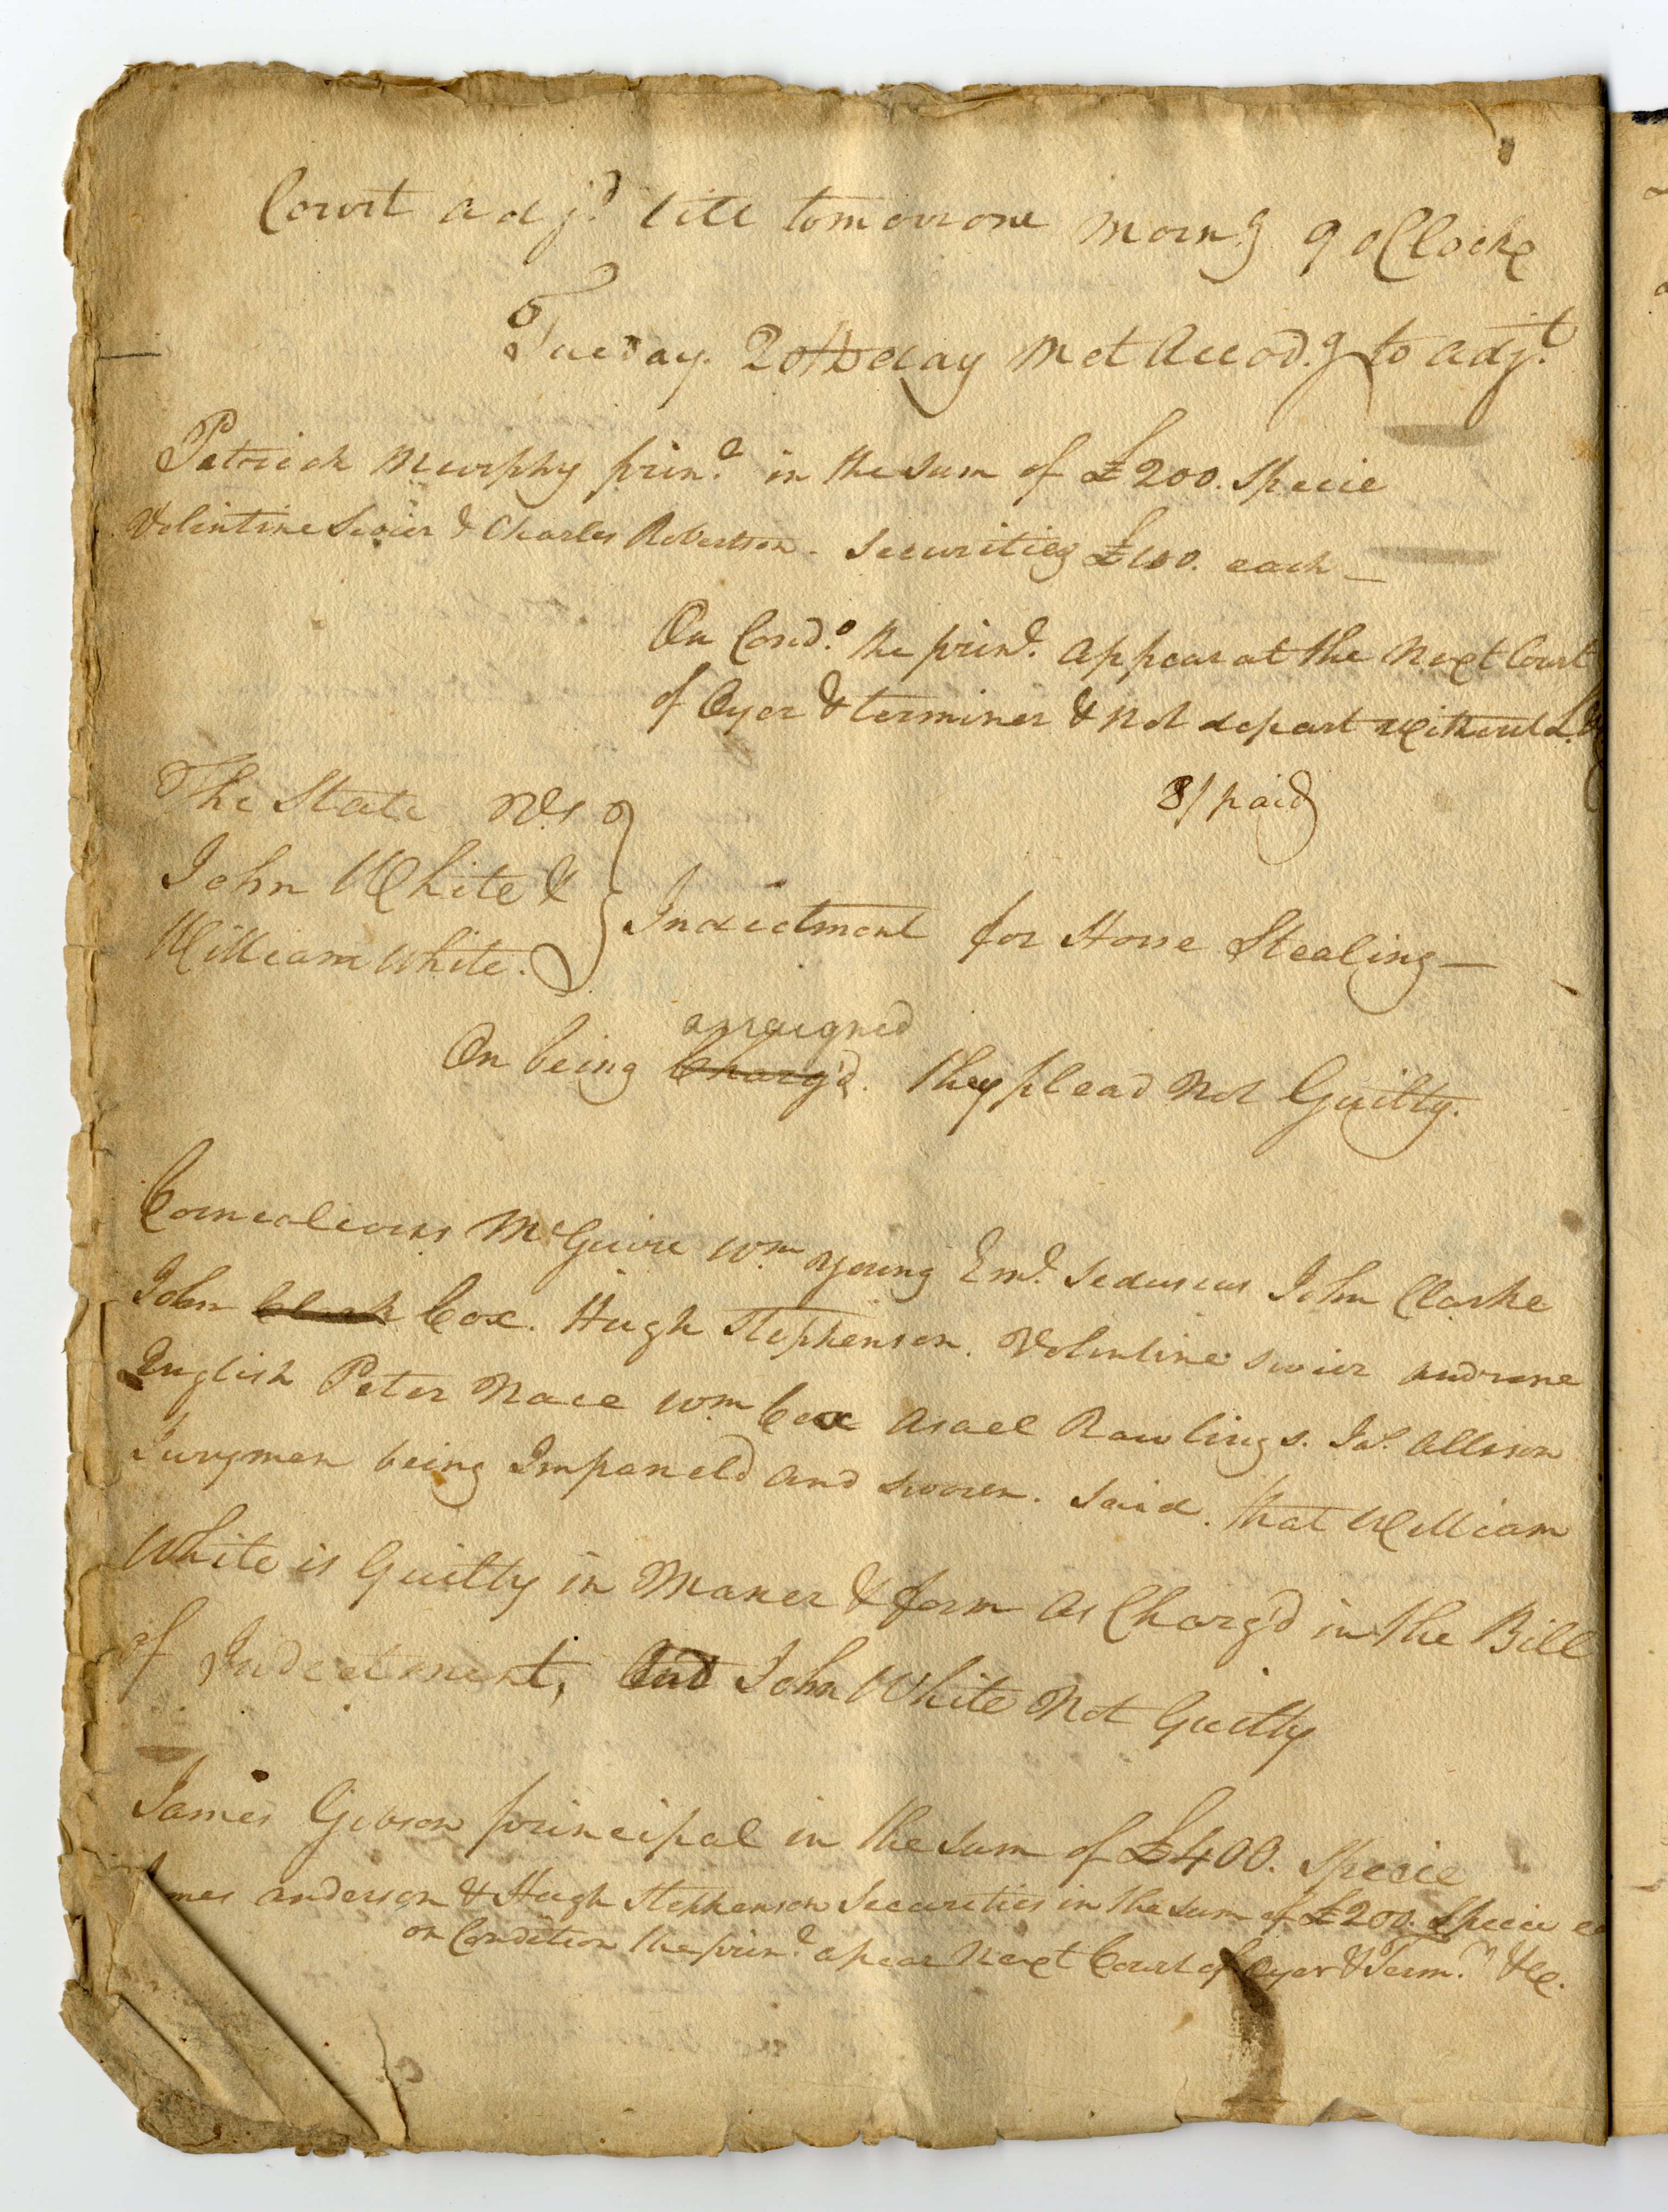 Court adjd. till tomorrow Morng. 9 oClocke
Tuesday. 20th day Met Accodg. to adjt.
Patrick Murphy prinl. in the sum of £200. Specie
Volintine Sevier & Charles Robertson. Securities £100. each —
On Condo. the prinl. Appear at the Next Court
of Oyer & terminer & Not depart without L.
8/ paid
The State vs
John White &
William White.
Indictment for Horse Stealing —
arraigned
On being Charg'd. they plead Not Guilty.
Cornealious McGuire Wm young Eml. Seduscus John Clarke
John Clark Cox. Hugh Stephenson. Volintine Sevier andrew
English Peter Nace Wm Cox Asael Rawlings. Js. Allison
Jurymen being Impaneld and sworn. Said. that William
White is Guilty in Maner & form As Charg'd in the Bill
of Indectment, but John White Not Guilty
James Gibson principal in the sum of £400. Specie
anderson & Hugh Stephenson Securities in the sum of £200. Specie
on Condition the prinl. apear Next Court of Oyer & Term.r &c.